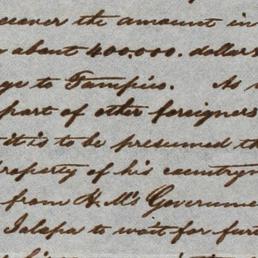 recover the amount in
about 400,000. dollars
to Tampico. As
part of other foreigners
it is to be presumed th
property of his countrym
from H.M's Governme
Jalapa to wait for fur